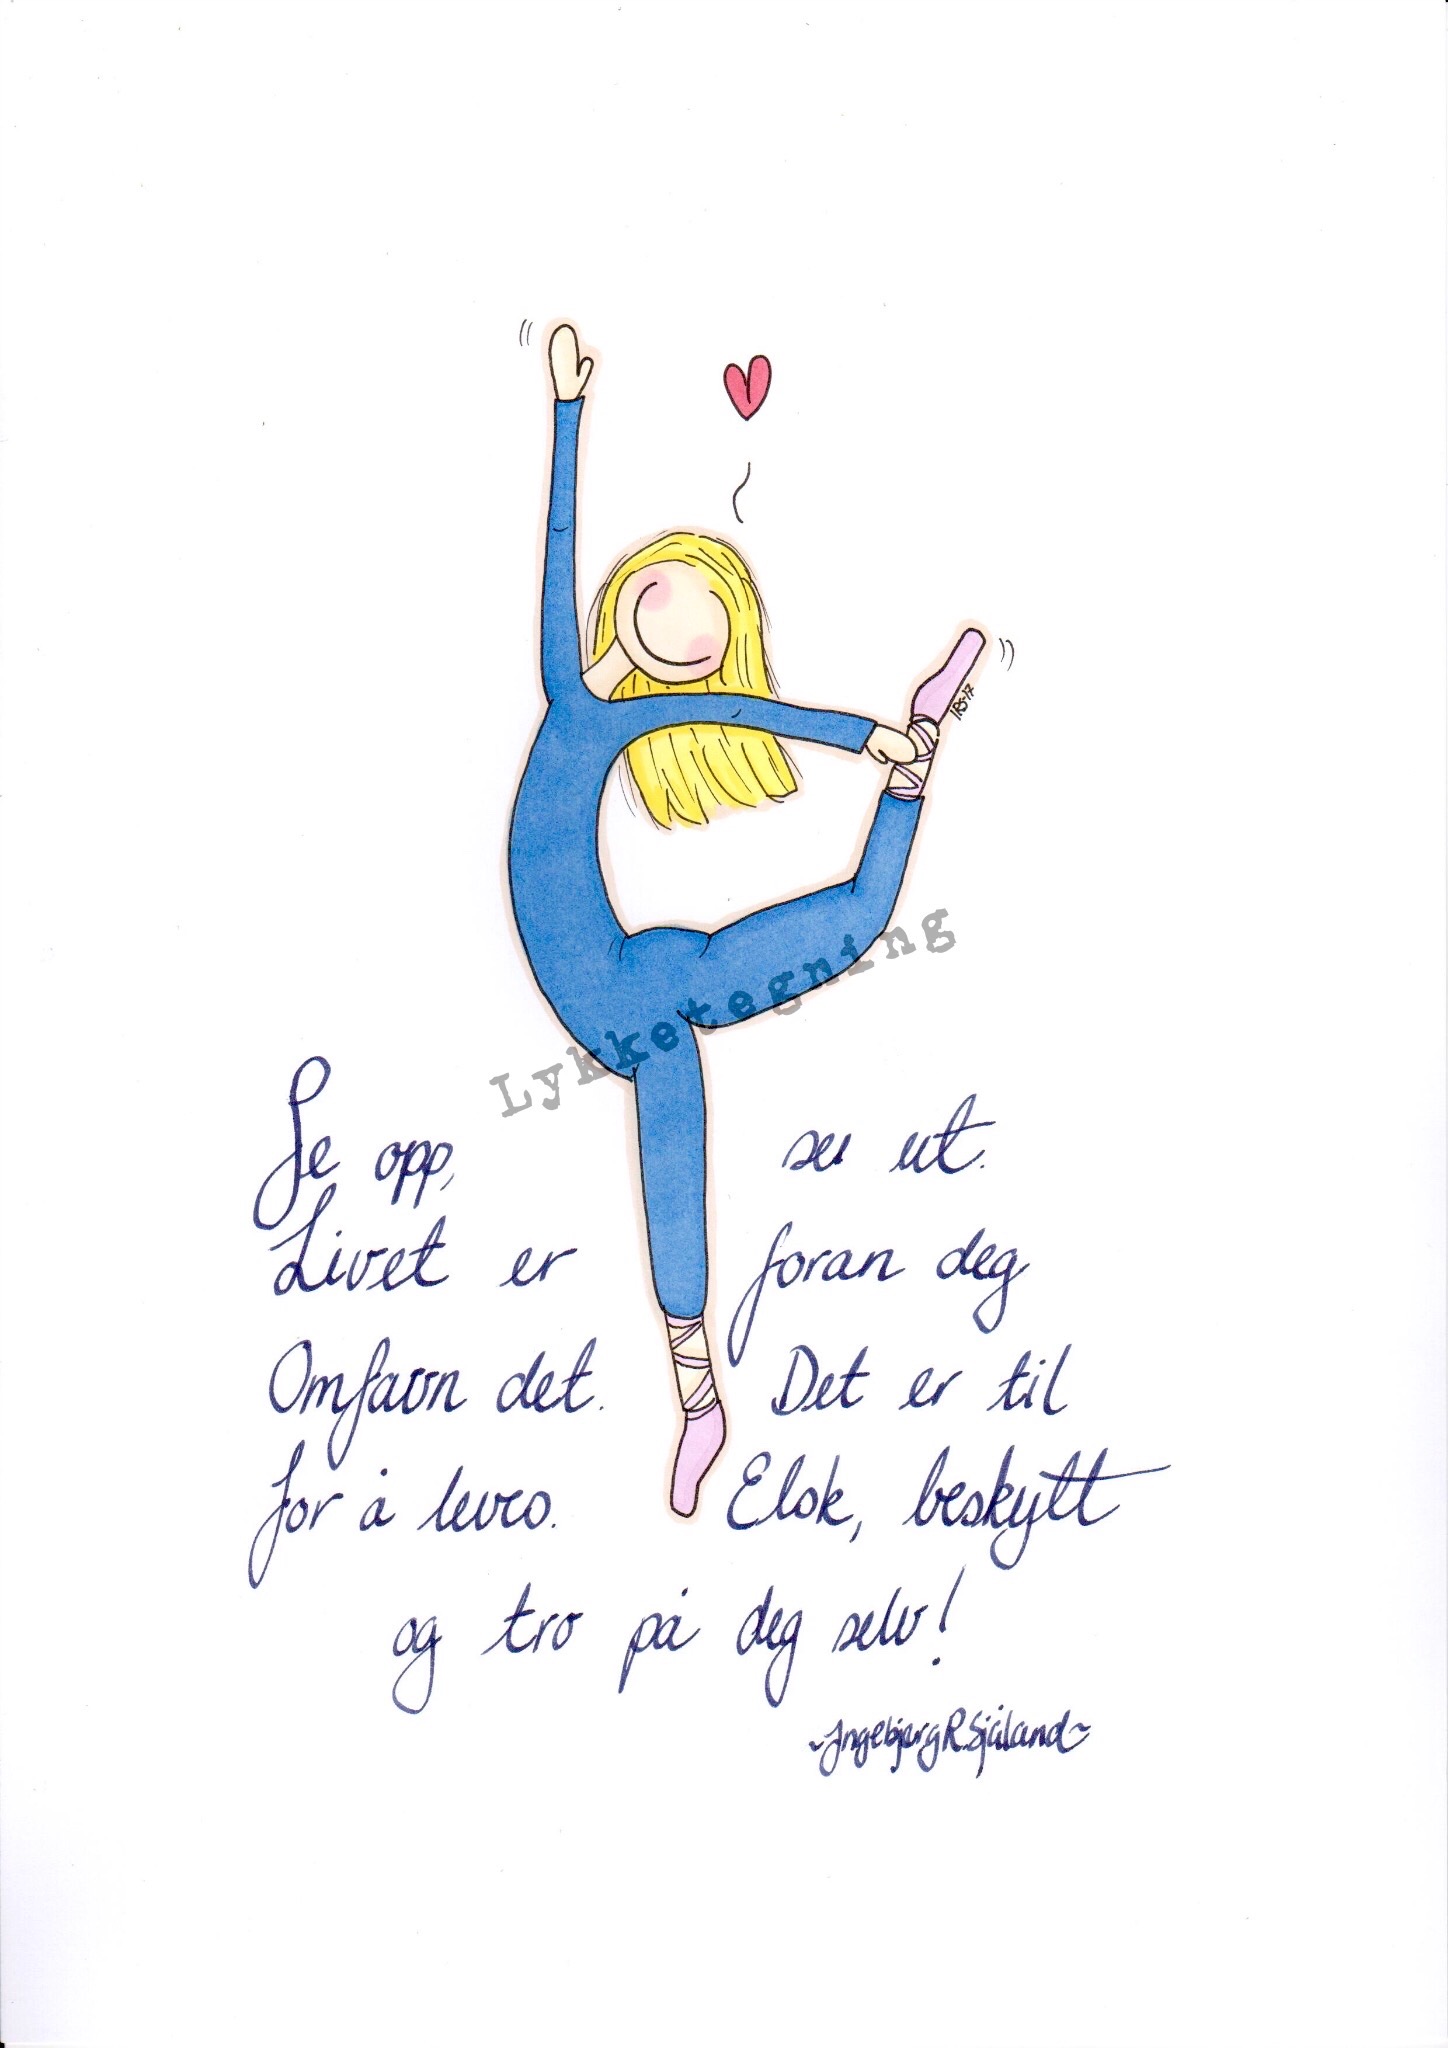 IRS-17
Lykketegning
Se opp, se ut.
Livet er foran deg
Omfavn det. Det er til
for å leves. Elsk, beskytt
og tro på deg selv!
~Ingebjørg R. Sjåland~